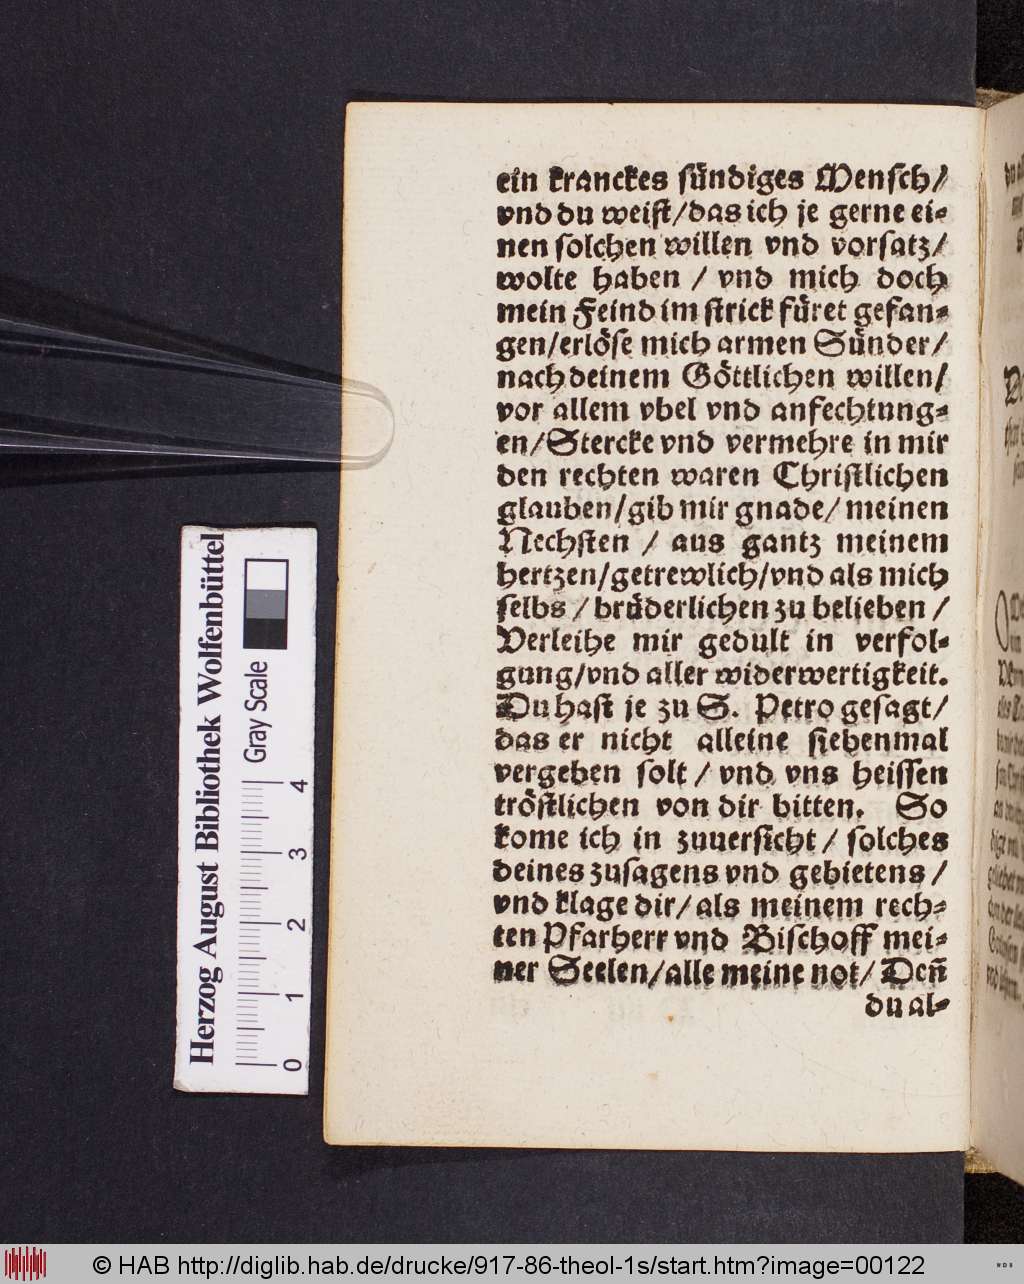 ein kranckes sündiges Mensch/
vnd du weist/das ich je gerne ei-
nen solchen willen vnd vorsatz/
wolte haben / vnd mich doch
mein Feind im strick füret gefan-
gen/erlöse mich armen Sünder/
nach deinem Göttlichen willen/
vor allem vbel vnd anfechtung-
en/Stercke vnd vermehre in mir
den rechten waren Christlichen
glauben/gib mir gnade/ meinen
Nechsten / aus gantz meinem
hertzen/getrewlich/vnd als mich
selbs / brüderlichen zu belieben /
Verleihe mir gedult in verfol-
gung/vnd aller widerwertigkeit.
Du hast je zu S. Petro gesagt/
das er nicht alleine siebenmal
vergeben solt / vnd vns heissen
tröstlichen von dir bitten. So
kome ich in zuuersicht / solches
deines zusagens vnd gebietens /
vnd klage dir/ als meinem rech-
ten Pfarherr vnd Bischoff mei-
ner Seelen/alle meine not/ Deñ
du al-
Herzog August Bibliothek Wolfenbüttel
Gray Scale
0 1 2 3 4
© HAB http://diglib.hab.de/drucke/917-86-theol-1s/start.htm?image=00122